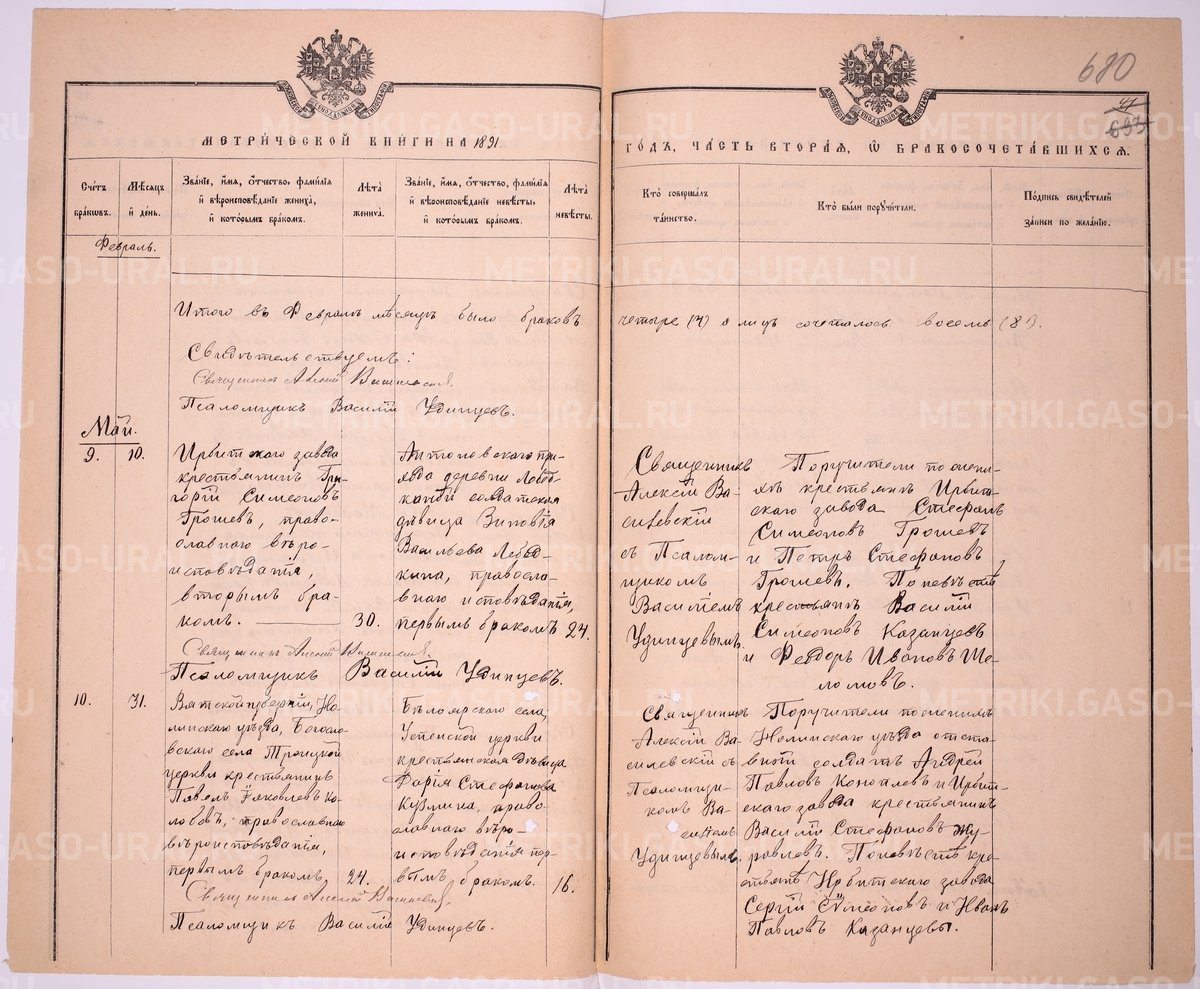 680
47
693
МЕТРИ́ЧЕСКОЙ КНИ́ГИ НА 1891
ГО́ДЪ, ЧА́СТЬ ВТОРА́Я, Ѡ҆ БРАКОСОЧЕТА́ВШИХСѦ.
Сче́тъ бра́ковъ.
Мѣ́сѧцъ и҆ де́нь.
Зва́нїе, и҆́мѧ, ѻ҆́тчество, фами́лїѧ и҆ вѣроисповѣ́данїе жениха̀, и҆ кото́рымъ бра́комъ.
Лѣ́та жениха̀.
Зва́нїе, и҆́мѧ, ѻ҆́тчество, фами́лїѧ и҆ вѣроисповѣ́данїе невѣ́сты, и҆ кото́рымъ бра́комъ.
Лѣ́та невѣ́сты.
Кто̀ соверша́лъ та́инство.
Кто̀ бы́ли пору́чители.
По́дпись свидѣ́телей за́писи по жела́нїю.
Февраль.
Итого въ Февралѣ мѣсяцѣ было браковъ
четыре (4) а лицъ сочеталось восемь (8).
Свидѣтельствуемъ:
Священникъ Алексій Василевскій.
Псаломщикъ Василій Удинцевъ.
Май.
9.
10.
Ирбитскаго завода
крестьянинъ Гри-
горій Симеоновъ
Грошевъ, право-
славнаго вѣро-
исповѣданія,
вторымъ бра-
комъ.
30.
Антоновскаго при-
хода деревни Лебед-
киной солдатская
дѣвица Зиновія
Васильева Лебед-
кина, правосла-
внаго исповѣданія,
первымъ бракомъ
24.
Священникъ
Алексій Ва-
силевскій
съ Псалом-
щикомъ
Василіемъ
Удинцевымъ.
Поручители по жени-
хѣ крестьянѣ Ирбит-
скаго завода Стефанъ
Симеоновъ Грошевъ
и Петръ Стефановъ
Грошевъ. По невѣстѣ
крестьянѣ Василій
Симеоновъ Казанцевъ
и Феодоръ Ивановъ Ше-
ломовъ.
Священникъ Алексій Василевскій.
Псаломщикъ Василій Удинцевъ.
10.
31.
Вятской губерніи, Но-
линскаго уѣзда, Богосло-
вскаго села Троицкой
церкви крестьянинъ
Павелъ Яковлевъ Ко-
лобовъ, православнаго
вѣроисповѣданія,
первымъ бракомъ.
24.
Бѣлоярскаго села,
Успенской церкви
крестьянская дѣвица
Дарія Стефанова
Кузлина, право-
славнаго вѣро-
исповѣданія пер-
вымъ бракомъ.
16.
Священникъ
Алексій Ва-
силевскій съ
Псаломщи-
комъ Ва-
силіемъ
Удинцевымъ.
Поручители по женихѣ
Нолинскаго уѣзда отста-
вной солдатъ Андрей
Павловъ Коновалевъ и Ирбит-
скаго завода крестьянинъ
Василій Стефановъ Жу-
равлевъ. По невѣстѣ кре-
стьянѣ Ирбитскаго завода
Сергій Симеоновъ и Иванъ
Павловъ Казанцевы.
Священникъ Алексій Василевскій.
Псаломщикъ Василій Удинцевъ.
METRIKI.GASO-URAL.RU